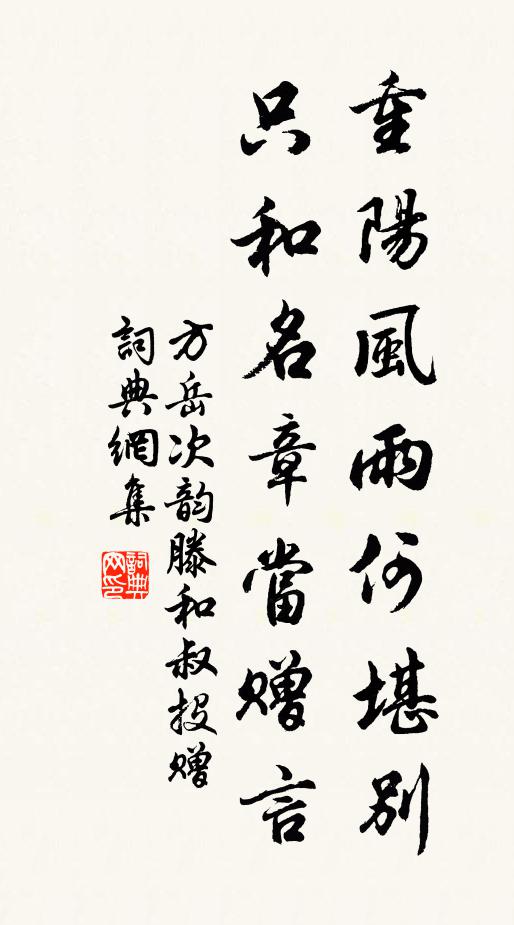 重陽風雨何堪別
只和名章當贈言
方岳次韵滕和叔投贈
詞典網集
詞典
网印